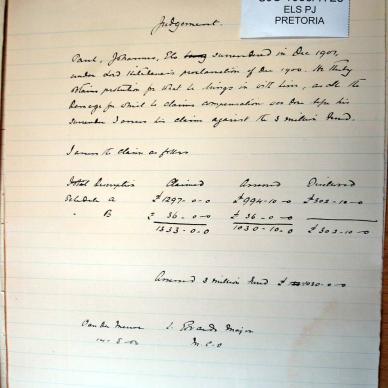 ELS PJ
PRETORIA
Judgement.
Paul, Johannes, Els surrendered in Dec 1900,
under Lord Kitchener's proclamation of Dec 1900. He thereby
obtains protection for what he brings in with him, as all the
damage for which he claims compensation was done before his
surrender I assess his claim against the 3 million fund.
I assess the claim as follows
Claimed Assessed Disallowed
Schedule A £1297-0-0 £994-10-0 £302-10-0
" B £ 36-0-0 £ 36-0-0
1333-0-0 1030-10-0 £302-10-0
Assessed 3 million fund £ 1030-10-0
Major
M.C.O